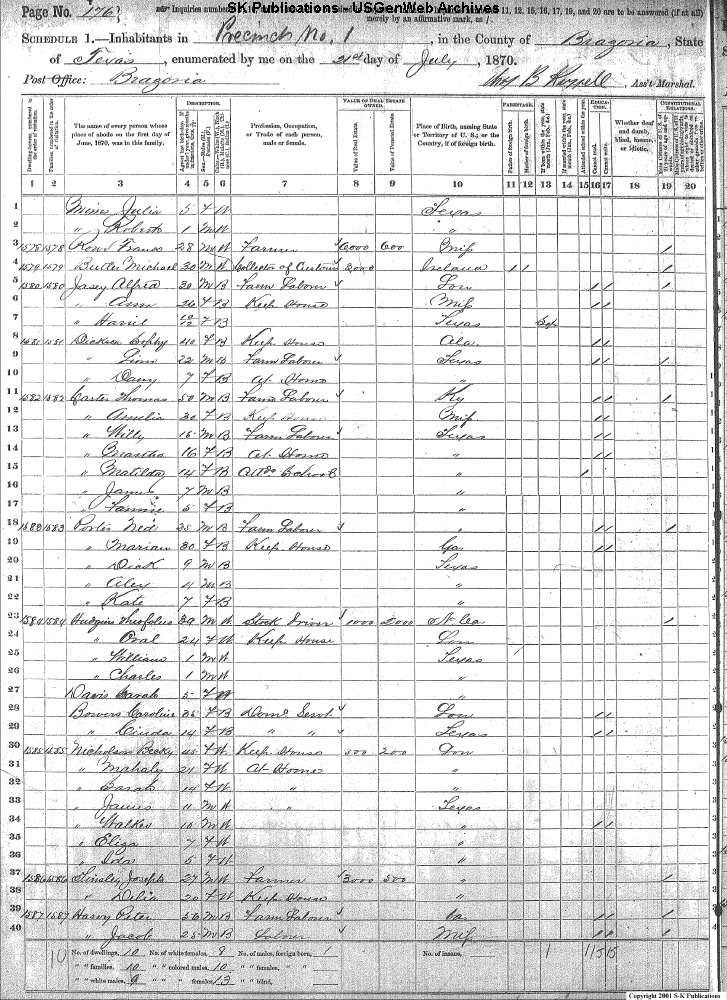 Page No. 176
SK Publications - USGenWeb Archives
Inquiries numbered 11, 12, 15, 16, 17, 19, and 20 are to be answered (if at all)
merely by an affirmative mark, as /.
SCHEDULE 1.—Inhabitants in Precinct No. 1, in the County of Brazoria, State
of Texas, enumerated by me on the 21st day of July, 1870.
Post Office: Brazoria Ass't Marshal.
Dwelling-houses, numbered in the order of visitation. Families, numbered in the order of visitation. The name of every person whose place of abode on the first day of June, 1870, was in this family. DESCRIPTION. Profession, Occupation, or Trade of each person, male or female. VALUE OF REAL ESTATE OWNED. Value of Real Estate. Value of Personal Estate. Place of Birth, naming State or Territory of U. S.; or the Country, if of foreign birth. PARENTAGE. Father of foreign birth. Mother of foreign birth. EDUCATION. Attended school within the year. Cannot read. Cannot write. Whether deaf and dumb, blind, insane, or idiotic. CONSTITUTIONAL RELATIONS.
1 2 3 4 5 6 7 8 9 10 11 12 13 14 15 16 17 18 19 20
1 Julia 5 F W Texas
2 " Robert 1 M W "
3 1578 1578 28 M W Farmer 6,000 600 Miss /
4 1579 1579 Butler Michael 30 M W Collector of Customs 2,000 Ireland / / /
5 1580 1580 Alfred 30 M B Farm Labour Lou / / /
6 " Ann 26 F B Keep House Miss / /
7 " 10/12 F B Texas
8 1581 1581 Dickson 40 F B Keep House Ala. / /
9 " 22 M B Farm Labour Texas / / /
10 " 7 F B At Home "
11 1582 1582 Carter Thomas 50 M B Farm Labour Ky / / /
12 " Amelia 30 F B Keep House Miss / /
13 " Willy 15 M B Farm Labour Texas / /
14 " Martha 16 F B At Home " / /
15 " Matilda 14 F B Attd School " /
16 " James 7 M B "
17 " Fannie 5 F B "
18 1583 1583 Porter Ned 25 M B Farm Labour " / / /
19 " Mariah 30 F B Keep House Ga. / /
20 " Dick 9 M B Texas
21 " Aley 4 M B "
22 " Kate 7 F B "
23 1584 1584 Hudgins 39 M W Stock Driver 1000 2000 N Ca /
24 " 24 F W Keep House Lou
25 " William 1 M W Texas
26 " Charles 1 M W "
27 Davis Sarah 5 F W "
28 Bowers Caroline 35 F B Dom. Servt Lou / /
29 " 14 F B " " Texas / /
30 1585 1585 Nicholson Becky 45 F W Keep House 500 200 Lou
31 " Mahaly 21 F W At Home "
32 " Sarah 14 F W " "
33 " James 11 M W " Texas
34 " Walker 10 M W " / /
35 " Eliza 7 F W "
36 " Ida 5 F W "
37 1586 1586 Tinsley Joseph 27 M W Farmer 3000 500 " /
38 " Delia 20 F W Keep House "
39 1587 1587 Harvy Peter 56 M B Farm Labour Va. / / /
40 " Jacob 25 M B Labour Miss / / /
10 No. of dwellings, 10 No. of white females, 9 No. of males, foreign born, 1 No. of insane, 1 1 15 15
" " families, 10 " " colored males, 10 " " females, " "
" " white males, 9 " " " females, 13 " " blind,
Copyright 2001 S-K Publications